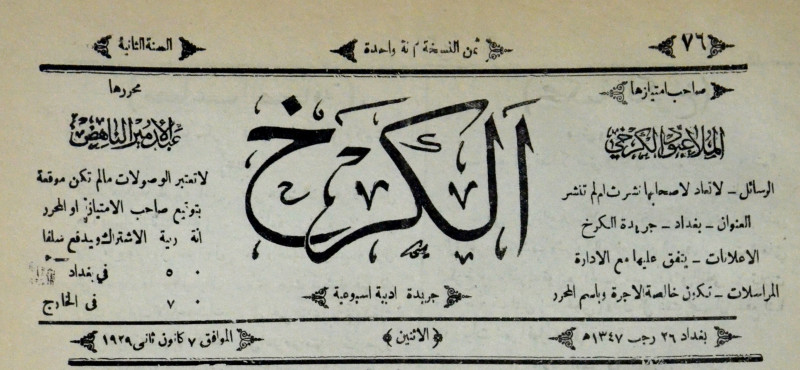 ٧٦
ثمن النسخة آنة واحدة
السنة الثانية
صاحب امتيازها
الملا عبود الكرخي
الرسائل – لاتعاد لاصحابها نشرت ام لم تنشر
العنوان – بغداد – جريدة الكرخ
الاعلانات – يتفق عليها مع الادارة
المراسلات – تكون خالصة الاجرة وباسم المحرر
الكرخ
جريدة ادبية اسبوعية
محررها
عبد الامير الناهض
لاتعتبر الوصولات مالم تكن موقعة
بتوقيع صاحب الامتياز او المحرر
ربية الاشتراك ويدفع سلفا
٥ في بغداد
٧ في الخارج
بغداد ٢٦ رجب ١٣٤٧ھ
(الاثنين)
الموافق ٧ كانون ثانى ١٩٢٩